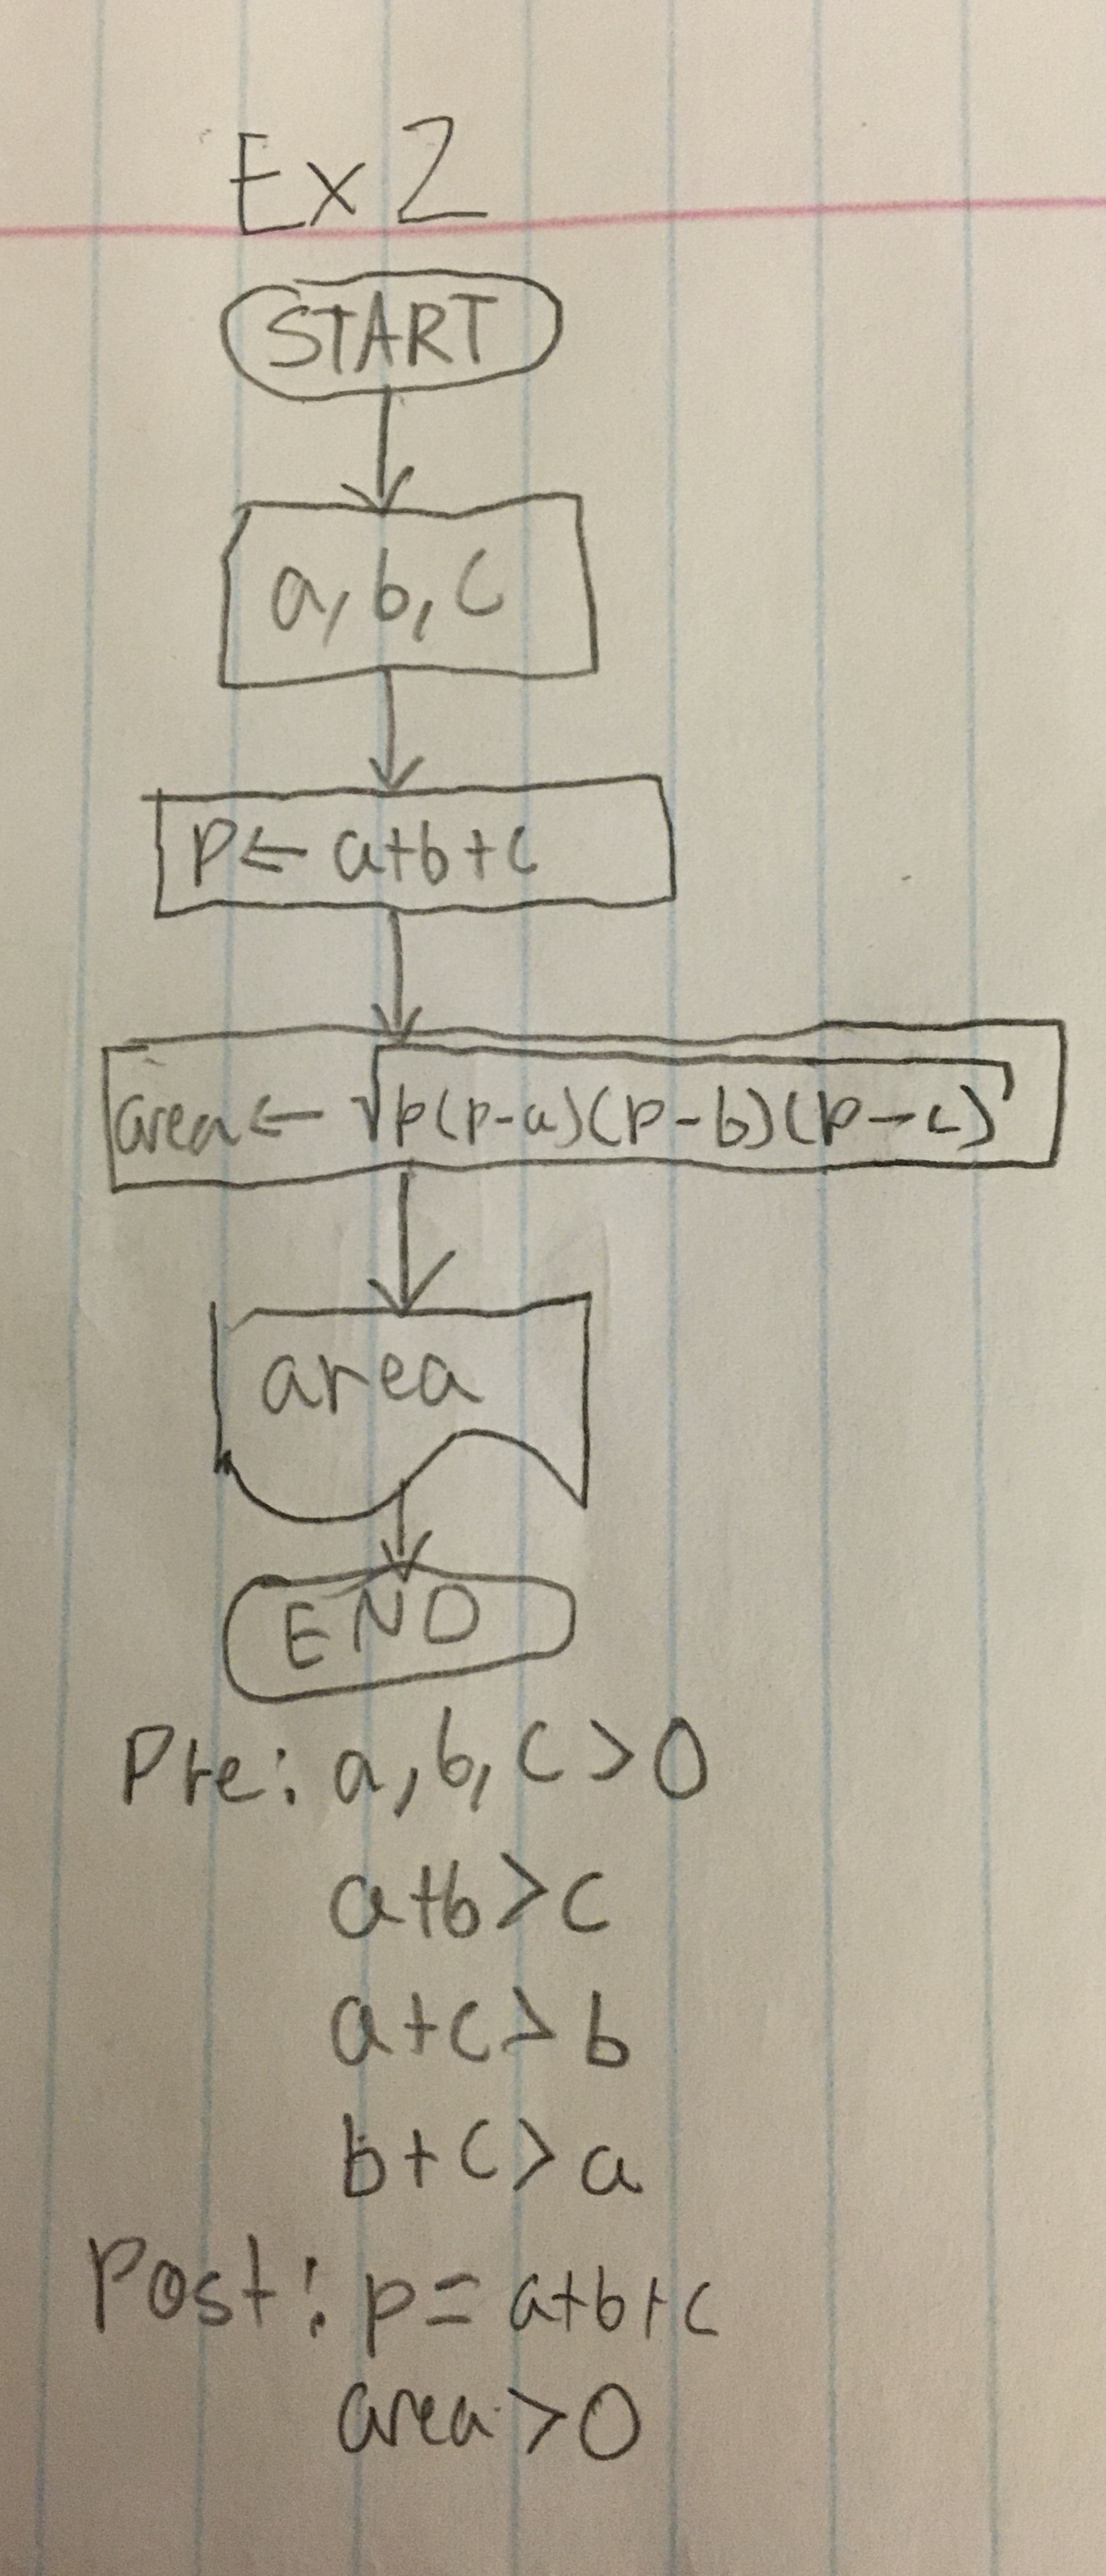 Ex 2
START
a, b, c
P ← a+b+c
area ← √p(p-a)(p-b)(p-c)
area
END
Pre: a, b, c > 0
a+b > c
a+c > b
b+c > a
Post: p = a+b+c
area > 0